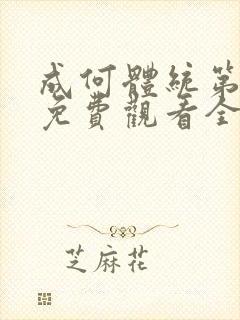 成何體統第
免費觀看全
芝麻花